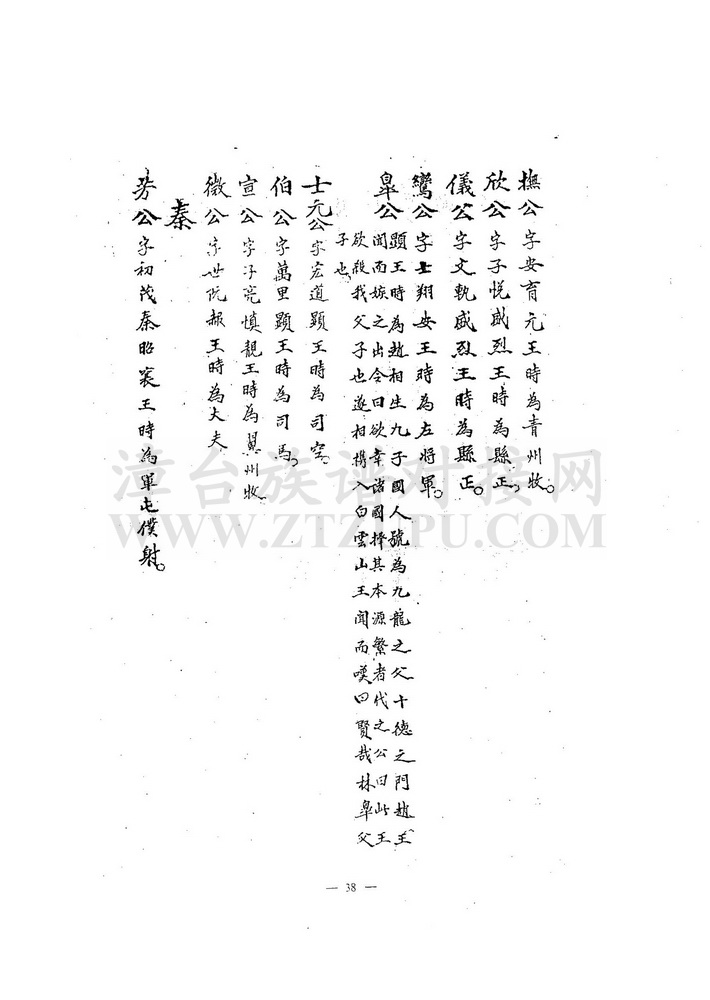 撫公字安育元王時為青州牧。
欣公字子悅威烈王時為縣正。
儀公字文軌威烈王時為縣正。
鸞公字士翔安王時為左將軍。
皐公顯王時為趙相生九子國人號為九龍之父十德之門趙王
聞而嫉之出令曰欲幸諸國擇其本源繁者代之公曰此王
欲殺我父子也遂相携入白雲山王聞而嘆曰賢哉林皐父
子也
士元公字宏道顯王時為司空。
伯公字萬里顯王時為司馬。
宣公字子亮慎靚王時為冀州牧。
徵公字世阮赧王時為大夫
秦
芳公字初茂秦昭襄王時為軍屯僕射。
漳台族譜对接网
WWW.ZTZUPU.COM
— 38 —